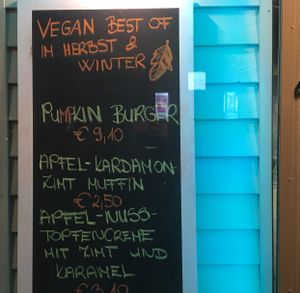 VEGAN BEST OF
IM HERBST &
WINTER
PUMPKIN BURGER
€ 9,10
APFEL-KARDAMON-
ZIMT MUFFIN
€ 2,50
APFEL-NUSS-
TOPFENCREME
MIT ZIMT UND
KARAMEL
€ 3,10